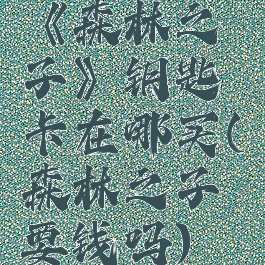 《森林之
子》钥匙
卡在哪买(
森林之子
要钱吗)